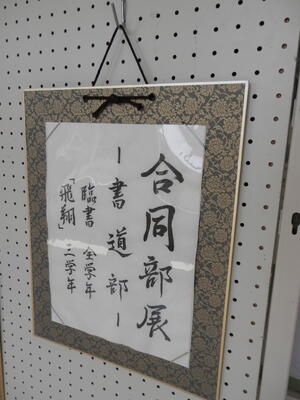 合同部展
ー書道部ー
臨書 全学年
「飛翔」二学年